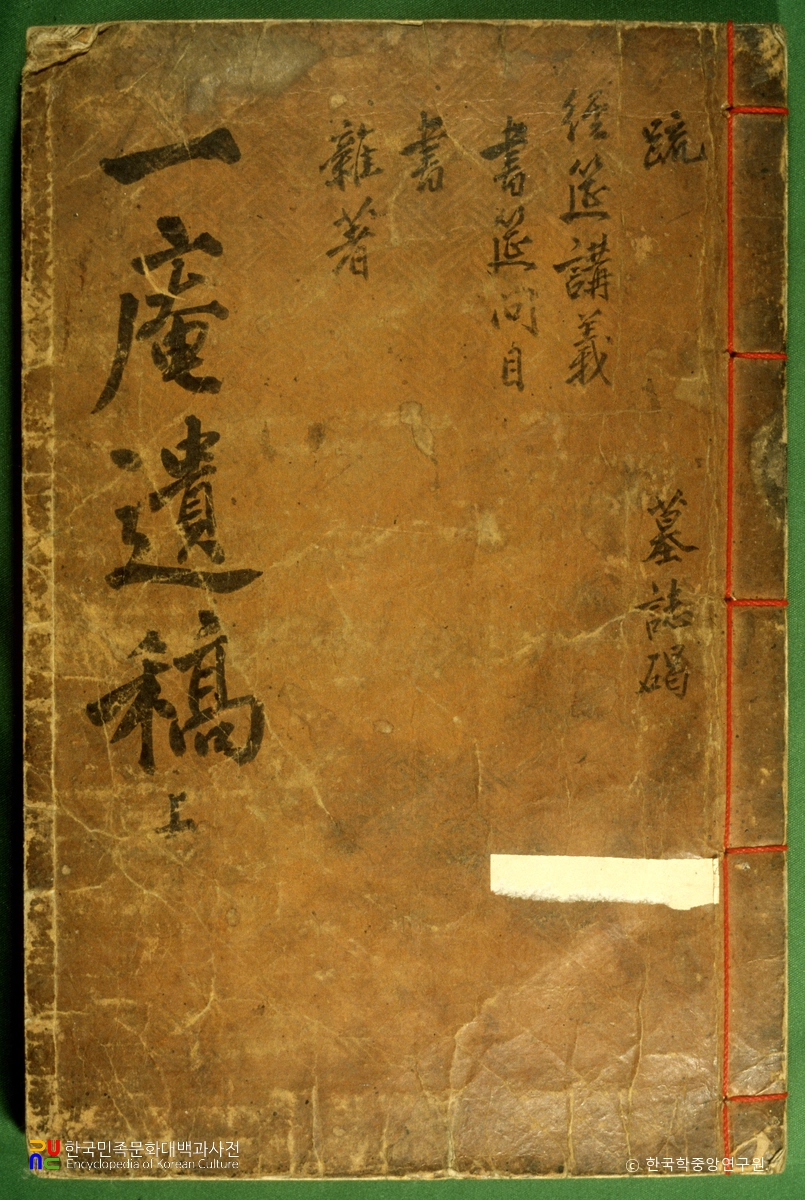 疏
墓誌碣
經筵講義
書筵問目
書
雜著
一庵遺稿 上
한국민족문화대백과사전
Encyclopedia of Korean Culture
ⓒ 한국학중앙연구원